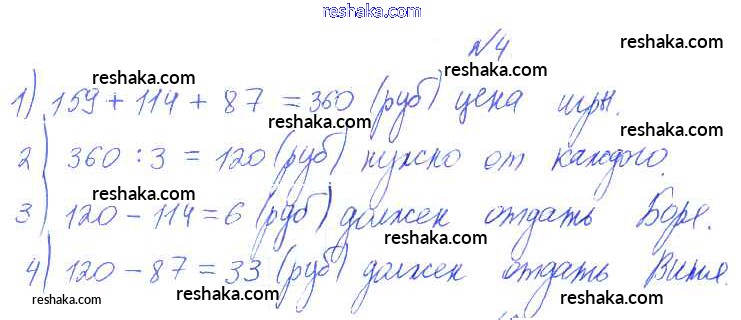 reshaka.com
№4
reshaka.com
reshaka.com
1) 159 + 114 + 87 = 360 (руб) цена игры.
reshaka.com
reshaka.com
2) 360 : 3 = 120 (руб) нужно от каждого.
reshaka.com
reshaka.com
3) 120 - 114 = 6 (руб) должен отдать Боре.
reshaka.com
4) 120 - 87 = 33 (руб) должен отдать Вите.
reshaka.com
reshaka.com
reshaka.com